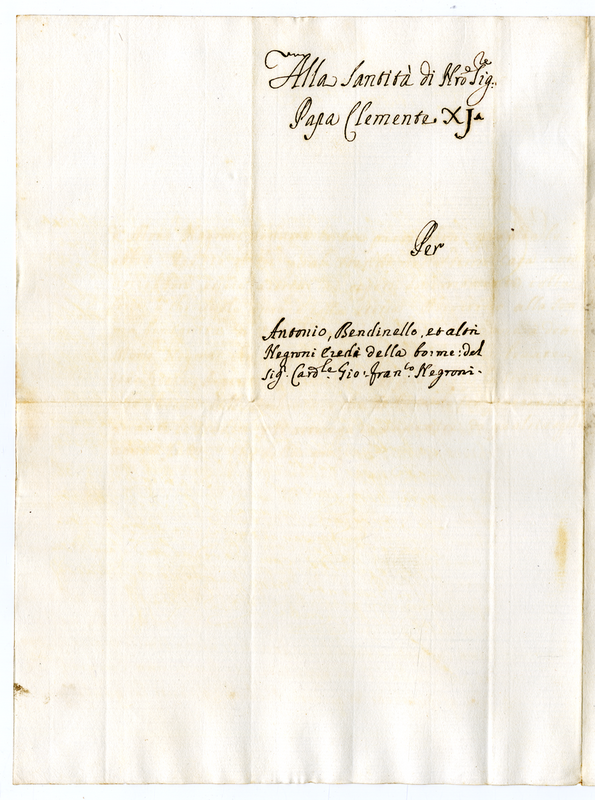 Alla Santità di Nro Sigre
Papa Clemente XJ
Per
Antonio, Bendinello, et altri
Negroni Eredi della bo: me: del
Sig. Cardle. Gio: Franco. Negroni.